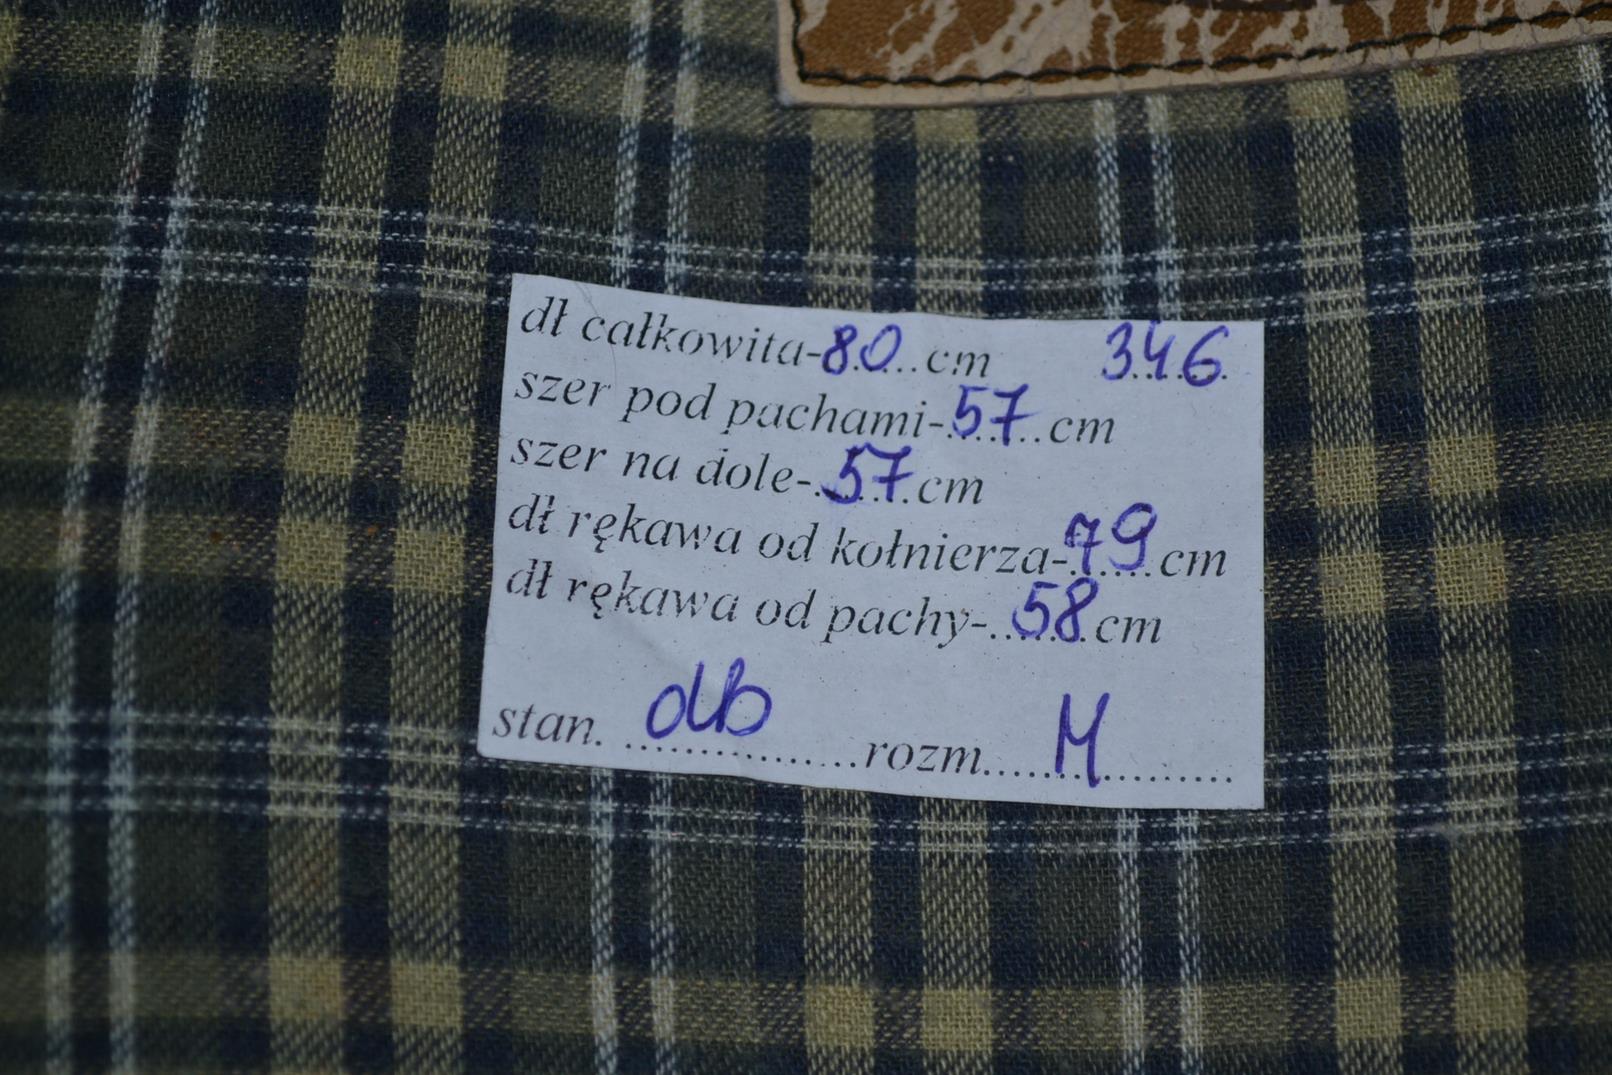 dł całkowita-80...cm 346
szer pod pachami-57...cm
szer na dole-.57.cm
dł rękawa od kołnierza-79cm
dł rękawa od pachy-..58.cm
stan. db rozm....M................